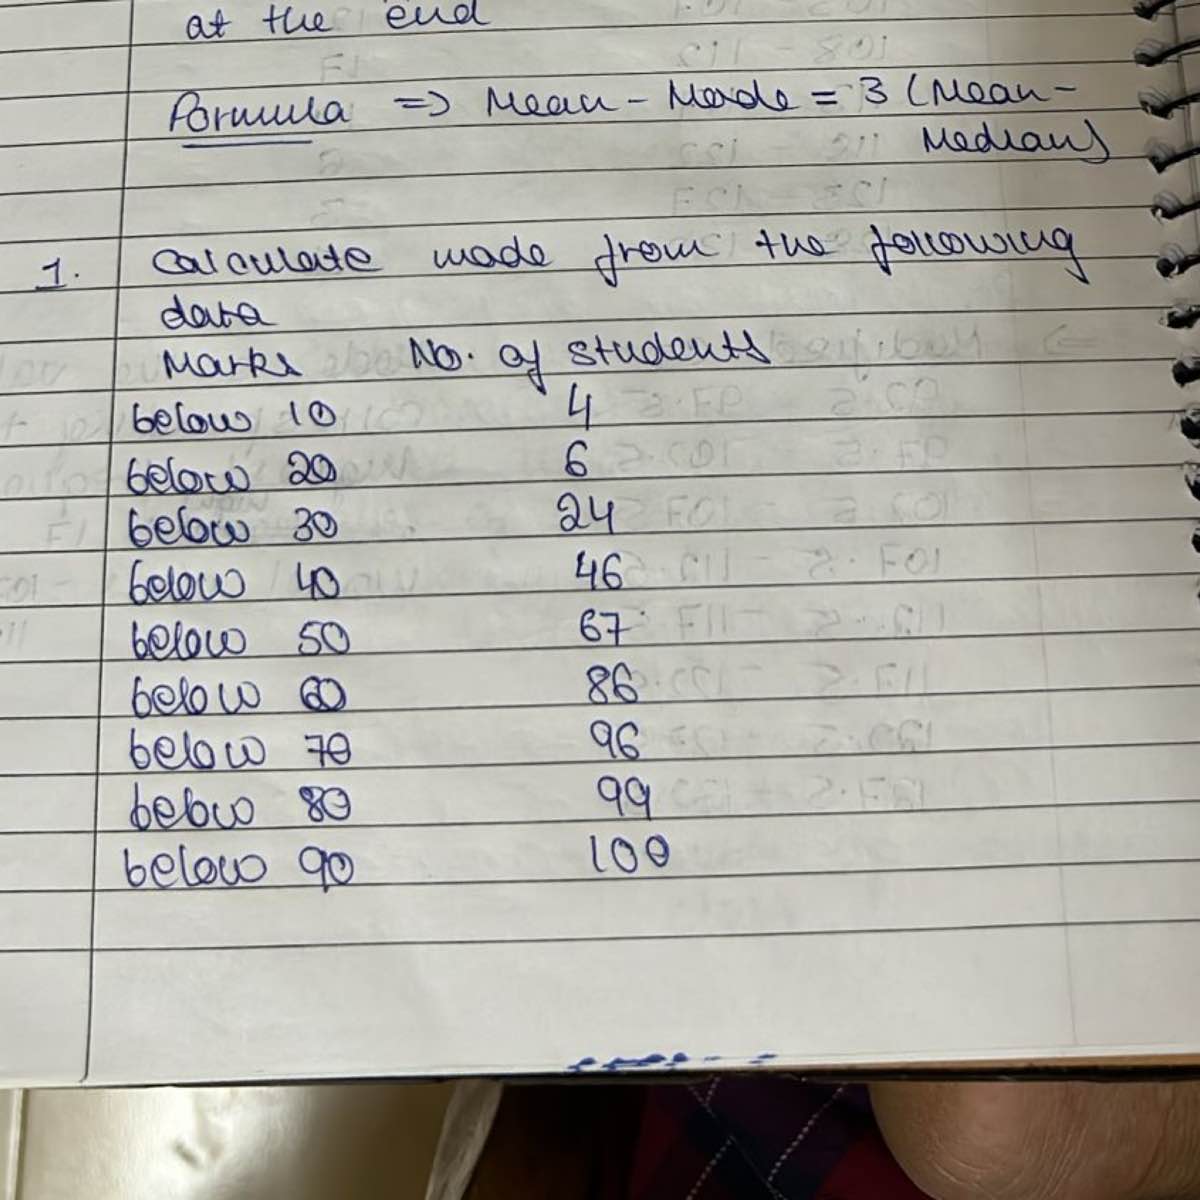 at the end
Formula => Mean - Mode = 3 (Mean -
Median)
1. Calculate mode from the following
data
Marks No. of students
below 10 4
below 20 6
below 30 24
below 40 46
below 50 67
below 60 86
below 70 96
below 80 99
below 90 100